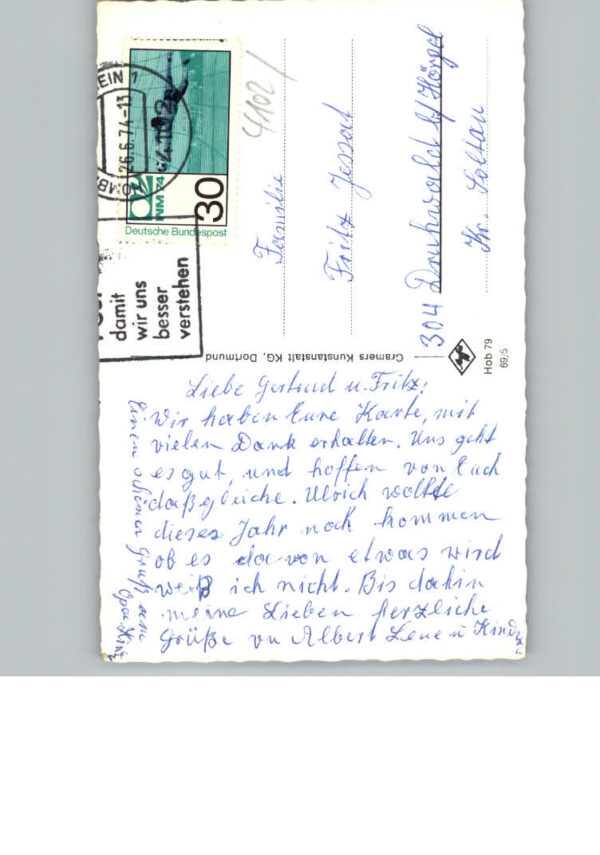 Liebe Gertrud u. Fritz!
Wir haben Eure Karte, mit
vielen Dank erhalten. Uns geht
es gut, und hoffen von Euch
daßgleiche. Ulrich wollte
dieses Jahr noch kommen
ob es da von etwas wird
weiß ich nicht. Bis dahin
meine Lieben herzliche
Grüße vn Albert Lene u Kinder
Einen schönen Gruß an
Opa
Familie
Fritz
304
Kr. Soltau
4102/
EIN 1
26.6.74-13
WM 74
30
Deutsche Bundespost
damit
wir uns
besser
verstehen
Cramers Kunstanstalt KG, Dortmund
Hob 79
69/5